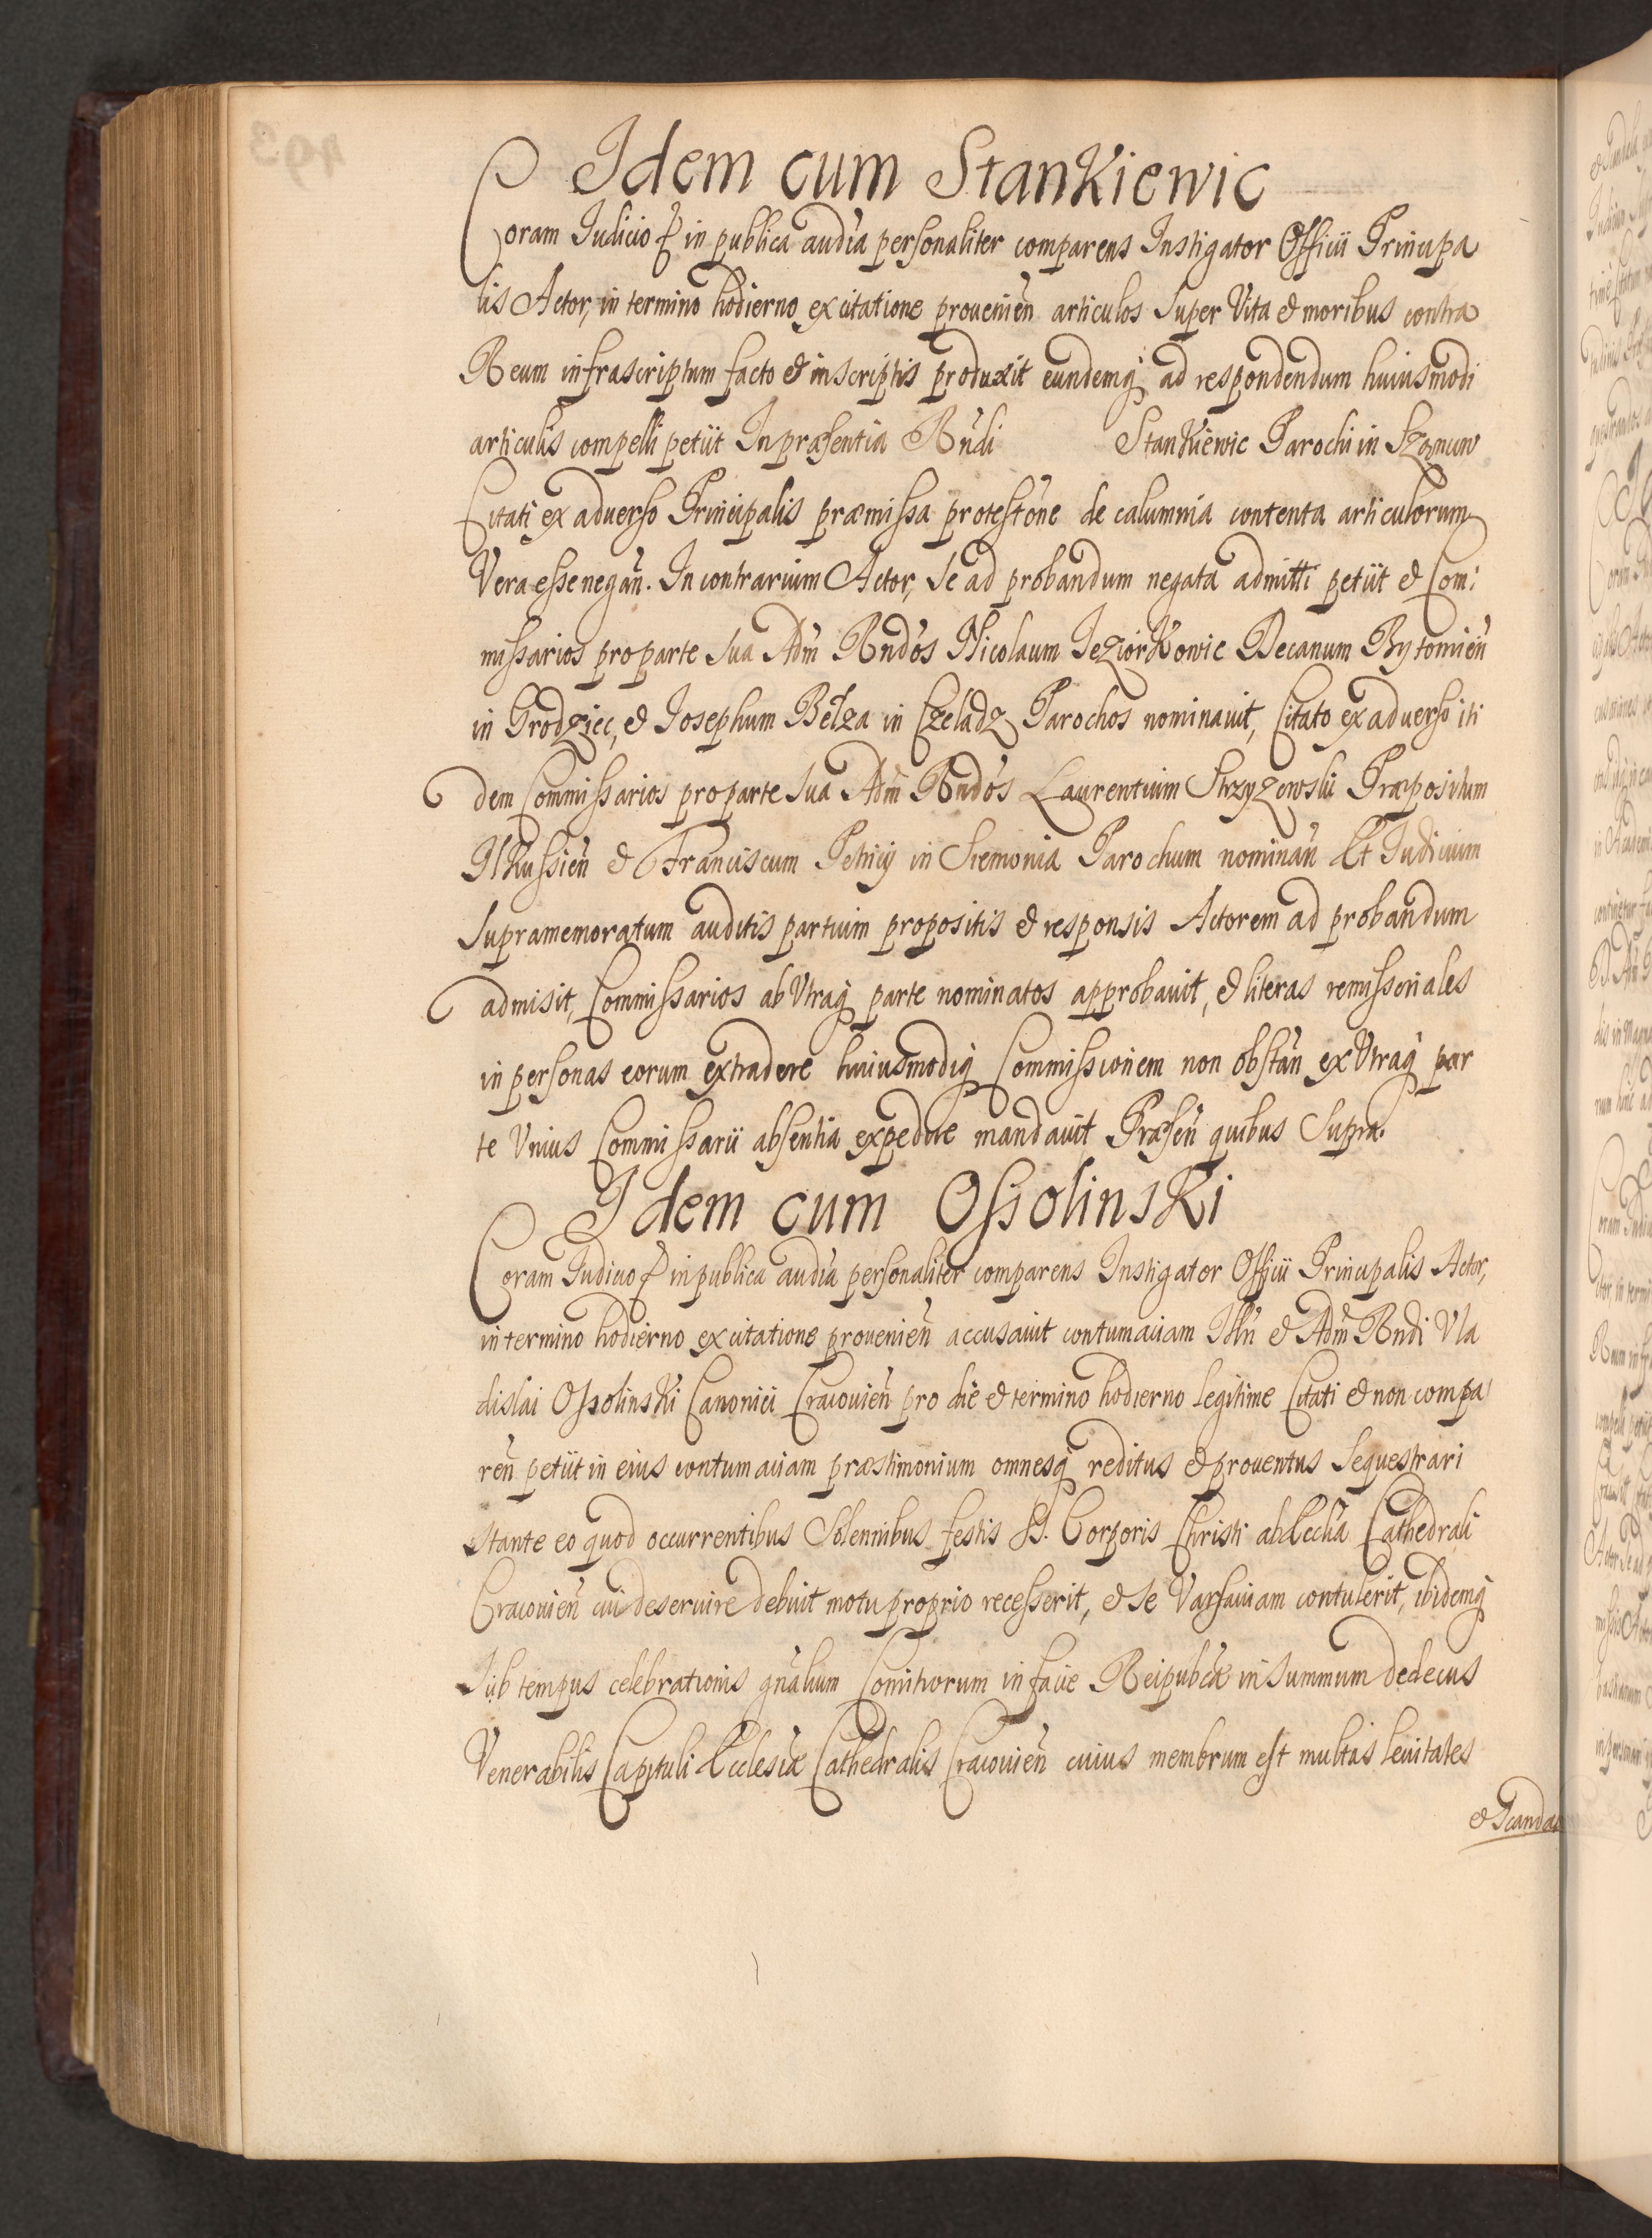 Idem cum Stankiewic
Coram Iudicio & in publica audia personaliter comparens Instigator Officii Principa
lis Actor, in termino hodierno ex citatione prouenien articulos super Vita & moribus contra
Reum infrascriptum facto & in scriptis produxit eundemq ad respondendum huiusmodi
articulis compelli petiit In præsentia Rndi Stankiewic Parochi in
Citati ex aduerso Principalis præmissa protestone de calumnia contenta articulorum
Vera esse negan. In contrarium Actor, se ad probandum negata admitti petiit & Com:
missarios pro parte sua Adm Rndos Nicolaum Jeziorkowic Decanum Bytomien
in Grodziec, & Josephum Bełza in Czeladz Parochos nominauit, Citato ex aduerso iti
dem Commissarios pro parte sua Adm Rndos Laurentium Strzyzewski Præpositum
Ilkussien & Franciscum Petricy in Siemonia Parochum nominan Et Iudicium
supramemoratum auditis partium propositis & responsis Actorem ad probandum
admisit, Commissarios ab Vtraq parte nominatos approbauit, & literas remissoriales
in personas eorum extradere huiusmodiq Commissionem non obstan ex Vtraq par
te Vnius Commissarii absentia expedire mandauit Præsen quibus Supra.
Idem cum Ossolinski
Coram Iudicio & in publica audia personaliter comparens Instigator Officii Principalis Actor,
in termino hodierno ex citatione prouenien accusauit contumaciam Illn & Adm Rndi Vla
dislai Ossolinski Canonici Cracouien pro die & termino hodierno legitime Citati & non compa
ren petiit in eius contumaciam præstimonium omnesq reditus & prouentus sequestrari
stante eo quod occurrentibus Solennibus festis SS. Corporis Christi ab Ecclia Cathedrali
Cracouien cui deseruire debuit motu proprio recesserit, & se Varsauiam contulerit, ibidemq
sub tempus celebrationis gnalium Comitiorum in facie Reipubcæ in summum dedecus
Venerabilis Capituli Ecclesiæ Cathedralis Cracouien cuius membrum est multas leuitates
& Scanda